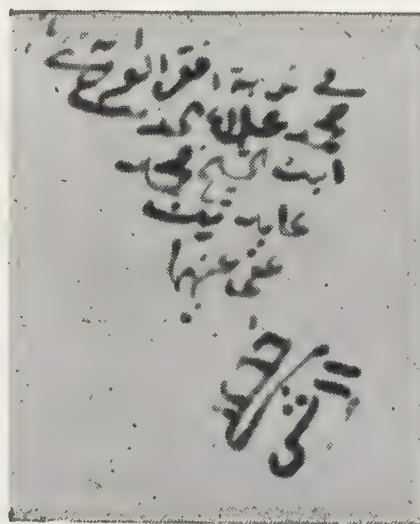 في نوبة افقر الورى
محمد علاء الدين
ابن السيد محمد
عابدين
عفي عنهما